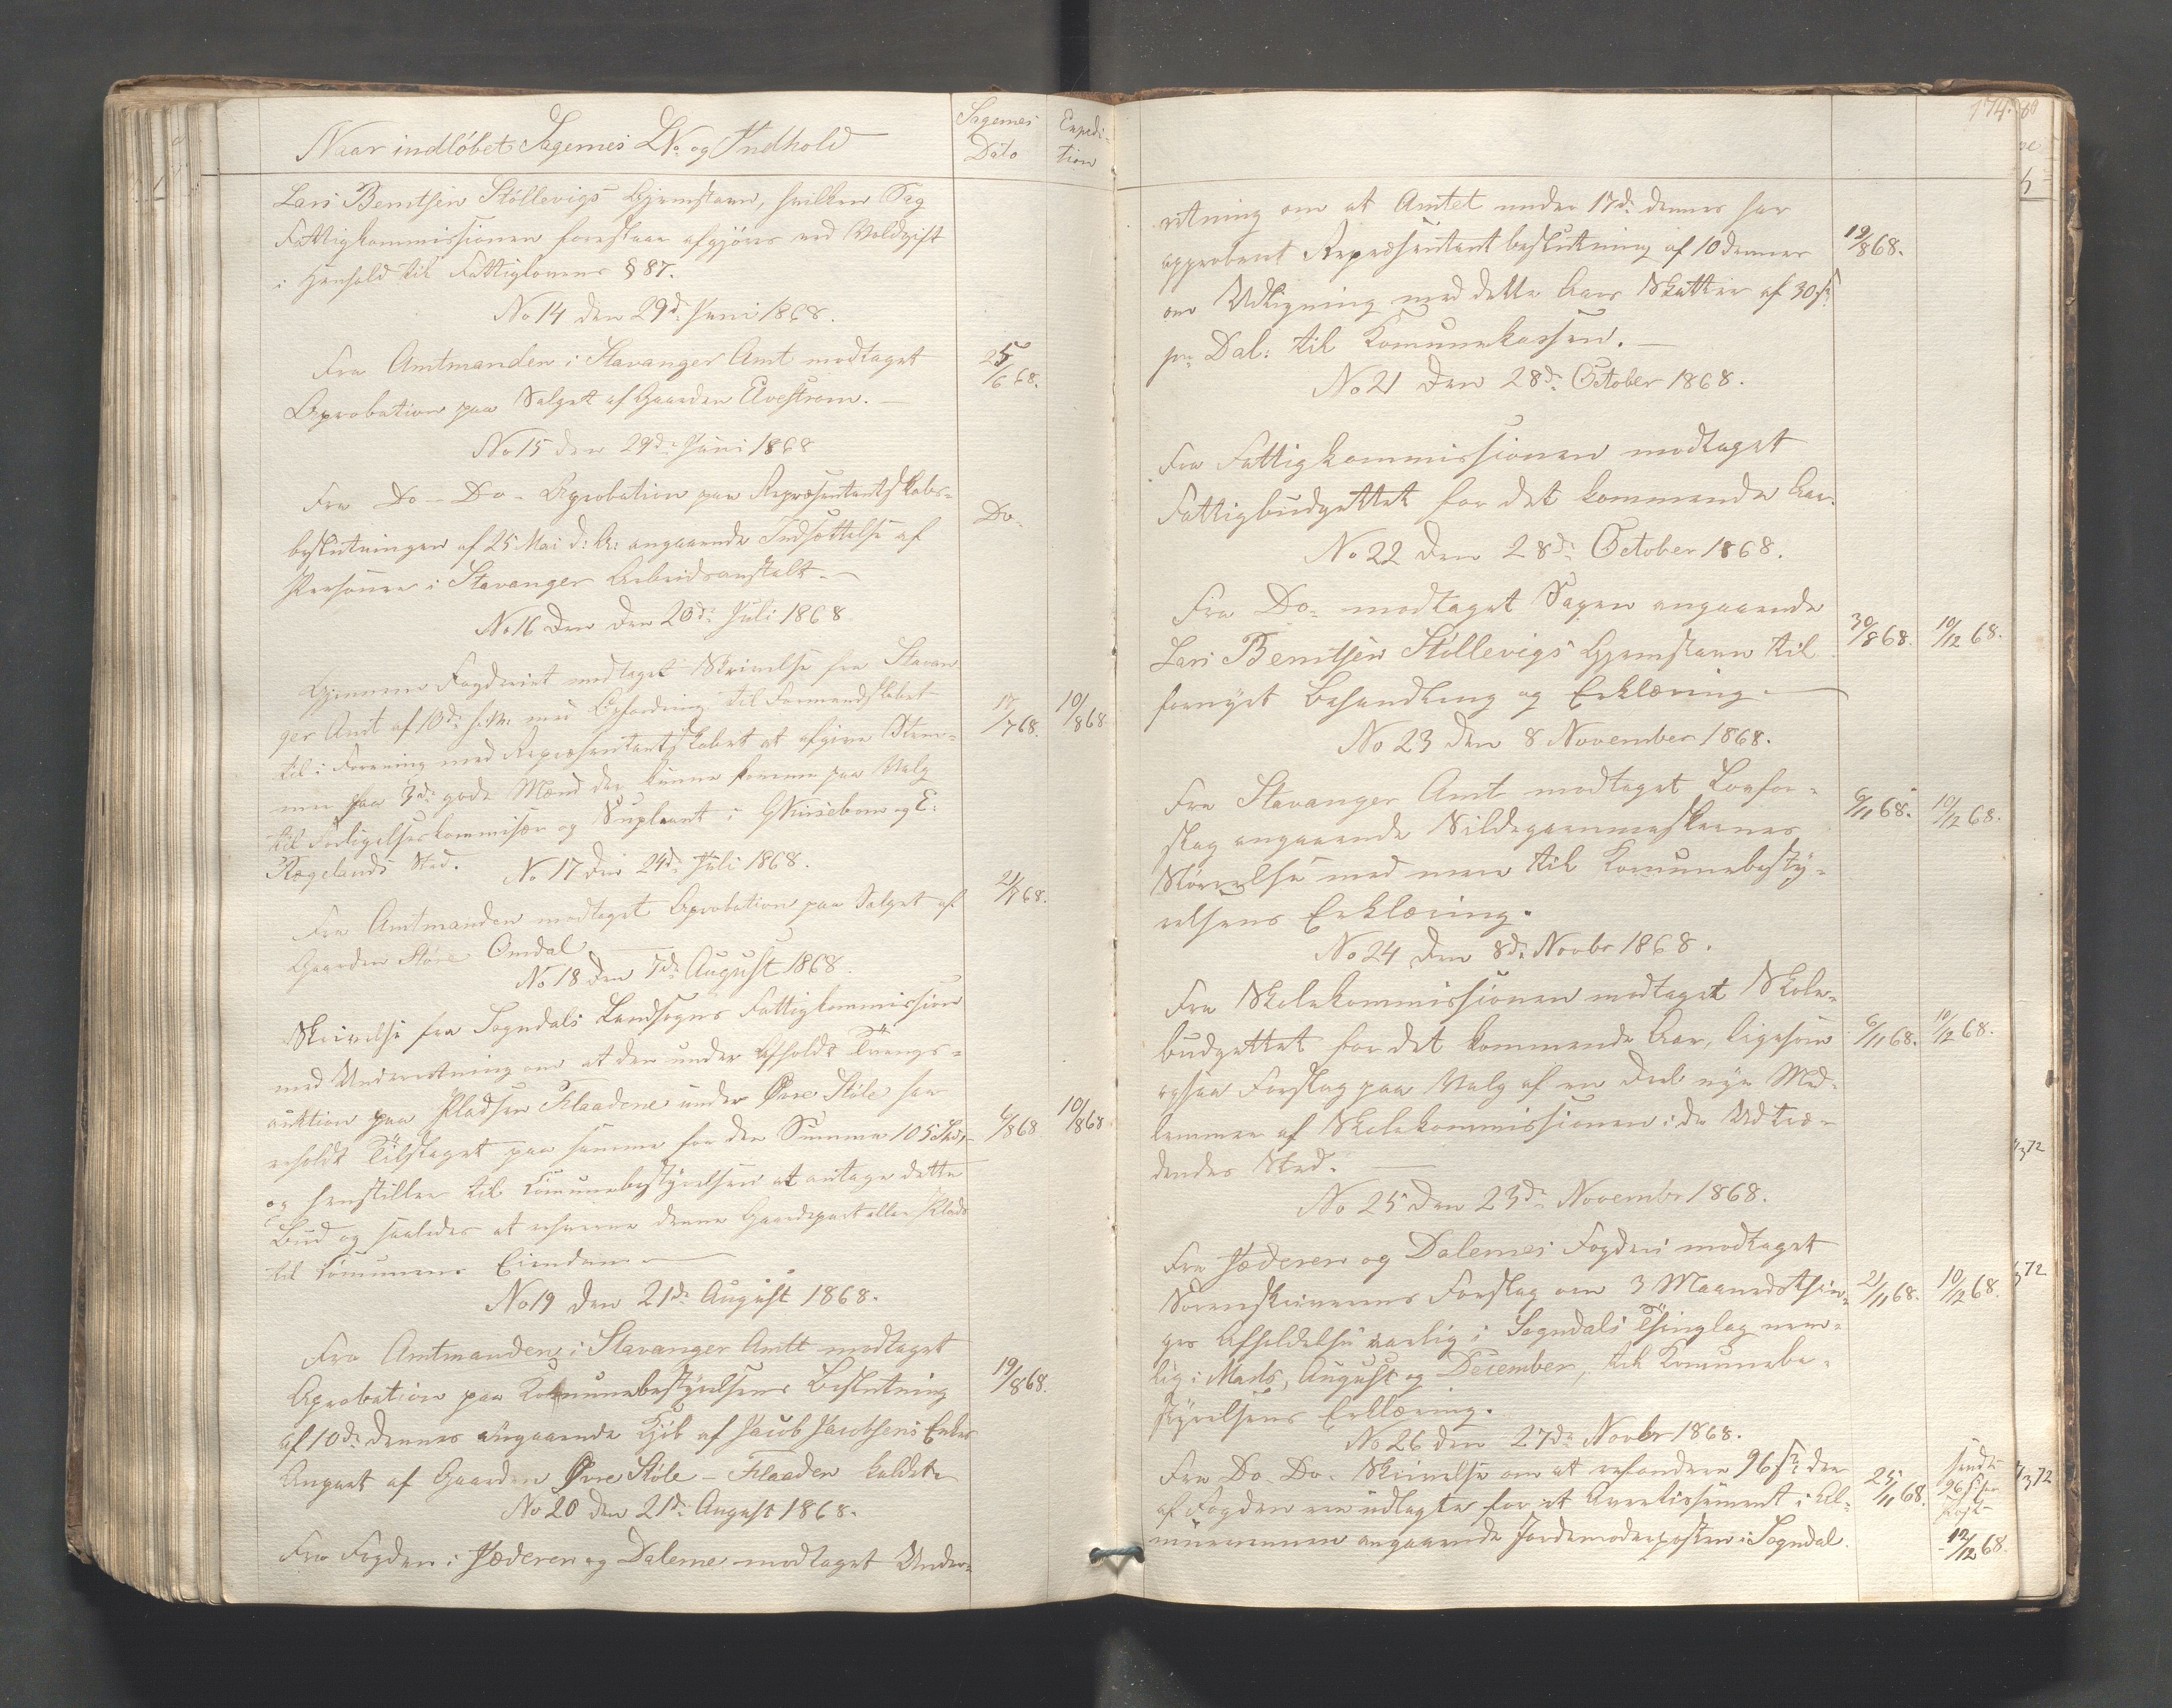 Naar indløbet Sagernes LNo. og Indhold
Sagernes Dato
Expedi-
tion
Lars Berntsen Støllevigs Hjemstavn, hvilken Sag
Fattigkommissionen foreslaar afgjøres ved Voldgift
i Henhold til Fattiglovens § 87.
No 14 den 29de Juni 1868.
Fra Amtmanden i Stavanger Amt modtaget
25/6 68.
Aprobation paa Salget af Gaarden Elvestrøm. —
No 15 den 29de Juni 1868
Fra Do - Do - Aprobation paa Repræsentantskabs-
beslutningen af 25 Mai d: A: angaaende Indsættelse af
Do.
Personer i Stavanger Arbeidsanstalt. —
No 16 den den 20de Juli 1868
Gjennem Fogderiet modtaget Skrivelse fra Stavan
ger Amt af 10de med Opfordring til Formandskabet
17/7 68.
10/8 68
til i Forening med Repræsentantskabet at afgive Stem-
mer paa 3de gode Mænd der kunne komme paa Valg
til Forligelseskommisær og Supleant i G Kirsebom og E.
Røgelands Sted.
No 17 den 24de Juli 1868.
Fra Amtmanden modtaget Aprobation paa Salget af
21/7 68.
Gaarden Støre Omdal
No 18 den 7de August 1868.
Skrivelse fra Sogndals Landsogns Fattigkommission
med Underretning om at den under afholdt Tvangs-
auktion paa Pladsen Flaadene under Øvre Støle har
erholdt Tilslaget paa samme for den Summa 105 Spd,
6/8 68
10/8 68
og henstiller til Komunebestyrelsen at antage dette
Bud og saaledes at erhverve denne Gaardepart eller Plads
til Komunens Eiendom —
No 19 den 21de August 1868.
Fra Amtmanden i Stavanger Amtt modtaget
Aprobation paa Komunebestyrelsens Beslutning
19/8 68.
af 10de dennes angaaende Kjøb af Jacob Jacobsens Enkes
Anpart af Gaarden Øvre Støle - Flaaden kaldet
No 20 den 21de August 1868.
Fra Fogden i Jæderen og Dalerne modtaget Under-
174.
retning om at Amtet under 17de dennes har
approberet Repræsentantbeslutning af 10 dennes
19/8 68.
om Udligning med dette Aars Skatter af 30 s
pr Dal: til Komunekassen. —
No 21 den 28de October 1868.
Fra Fattigkommissionen modtaget
Fattigbudgettet for det kommende Aar.
No 22 den 28de October 1868.
Fra Do- modtaget Sagen angaaende
Lars Berntsen Støllevigs Hjemstavn til
30/8 68.
10/12 68.
fornyet Behandling og Erklæring. —
No 23 den 8 November 1868.
Fra Stavanger Amt modtaget Lovfor-
slag angaaende Sildegarnmaskernes
6/11 68.
10/12 68.
Størrelse med mere til Komunebesty-
relsens Erklæring.
No 24 den 8de Novbr 1868.
Fra Skolekommissionen modtaget Skole-
budgettet for det kommende Aar, ligesom
6/11 68.
10/12 68.
ogsaa Forslag paa Valg af en Deel nye Med-
lemmer af Skolekommissionen i de Udtræ-
dendes Sted. —
No 25 den 23de Novembr 1868.
Fra Jæderen og Dalernes Fogderi modtaget
Sorenskriverens Forslag om 3 Maanedsthin-
21/11 68.
10/12 68.
ges Afholdelse aarlig i Sogndals Thinglag nem-
lig i Marts, August og December, til Komunebe-
styrelsens Erklæring.
No 26 den 27de Novbr 1868.
Fra Do. Do. Skrivelse om at refundere 96 s: den
25/11 68.
sendt
96 s pr
Post
12/12 68.
af Fogden ere udlagte for et Avertissement i
angaaende Jordemoderposten i Sogndal.